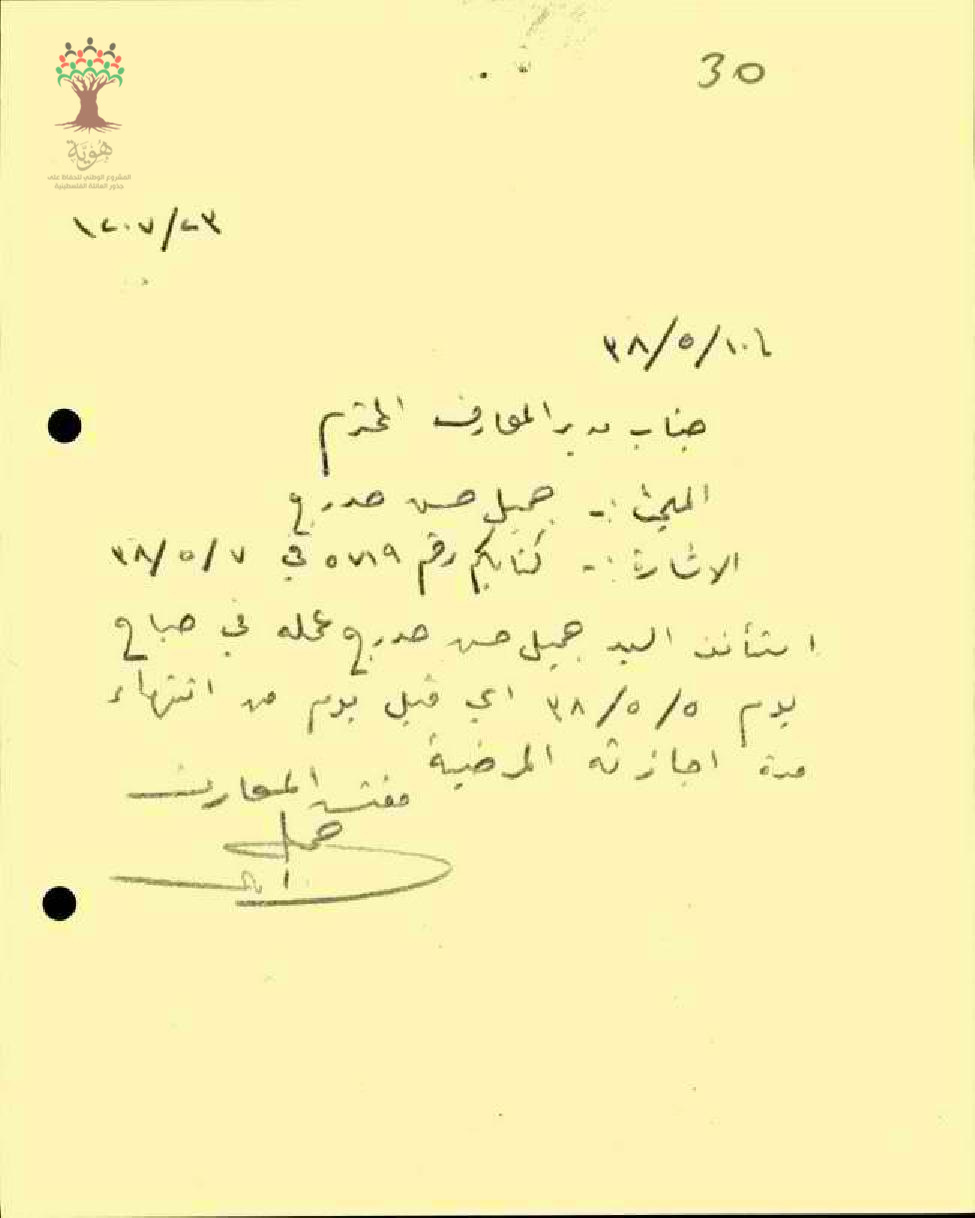 30
هُوِيَّة
المشروع الوطني للحفاظ على
جذور العائلة الفلسطينية
١٢٠٧/٢٣
٣٨/٥/
جناب مدير المعارف المحترم
جميل حسن
الاشارة :- كتابكم رقم ٥٧١٩ في ٣٨/٥/٧
استأنف السيد جميل حسن عمله في صباح
يوم ٣٨/٥/٥ اي قبل يوم من انتهاء
مدة اجازته المرضية
مفتش المعارف